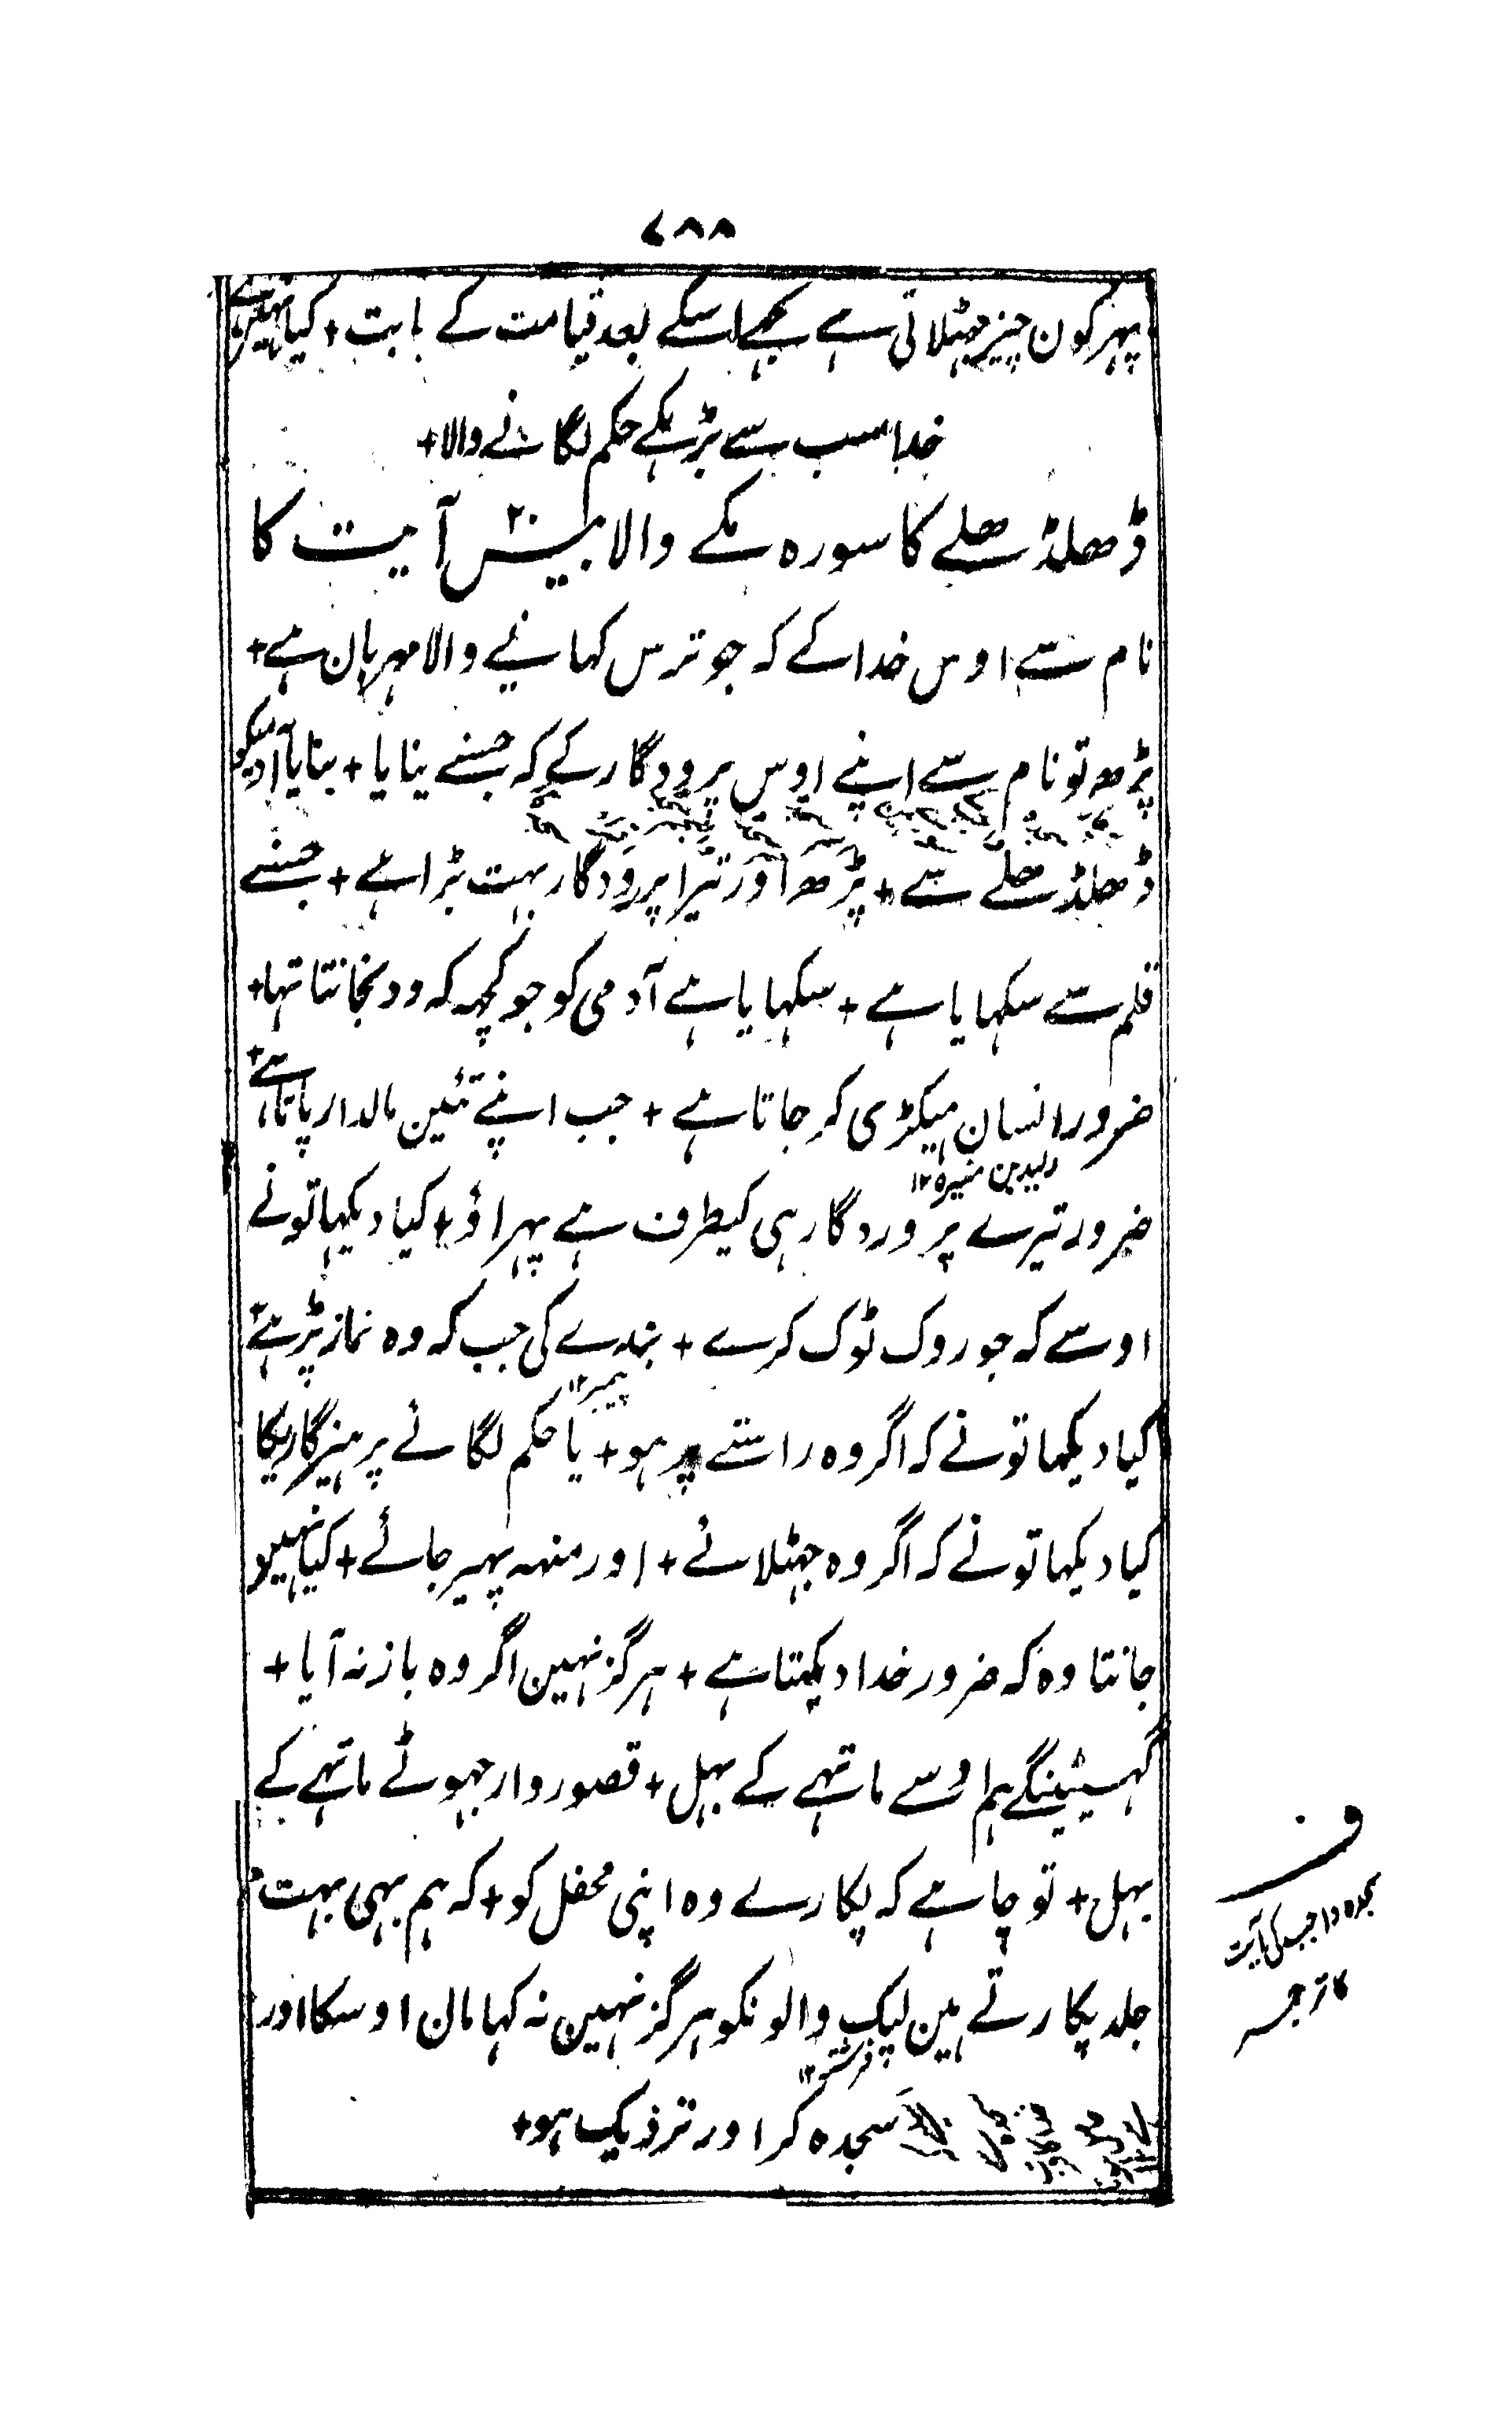 ۷۸۸
پہر کون چیز جہٹلاتی ہے تجہے اسکے بعد قیامت کے بابت + کیا نہیں ہے
خدا سب سے بڑہکے حکم لگانے والا +
ڈھلڈھلے کا سورہ مکے والا بیس ۲۰ آیت کا
نام سے اوس خدا کے کہ جو ترس کہانے والا مہربان ہے +
پڑھ تو نام سے اپنے اوس پرودگار کے کہ جسنے بنایا + بنایا آدمیکو
ڈھلڈھلے سے + پڑھ اور تیرا پرودگار بہت بڑا ہے + جسنے
قلم سے سکہایا ہے + سکہایا ہے آدمی کو جو کچہ کہ وہ نجانتا تہا +
ضرور انسان ہیکڑی کر جاتا ہے + جب اپنے تئین مالدار پاتا ہے +
ولید بن مغیرہ ۱۲
ضرور تیرے پروردگار ہی کیطرف ہے پہراؤ + کیا دیکہا تونے
اوسے کہ جو روک ٹوک کرے + بندے کی جب کہ وہ نماز پڑہے +
پیمبر ۱۲
کیا دیکہا تونے کہ اگر وہ راستے پر ہو + یا حکم لگائے پرہیزگاریکا
کیا دیکہا تونے کہ اگر وہ جہٹلائے + اور منہ پہیر جائے + کیا نہیں
جانتا وہ کہ ضرور خدا دیکہتا ہے + ہرگز نہین اگر وہ باز نہ آیا +
گہسیٹینگے ہم اوسے ماتہے کے بہل + قصوروار جہوٹے ماتہے کے
بہل + تو چاہے کہ پکارے وہ اپنی محفل کو + کہ ہم بہی بہت
جلد پکارتے ہین لپک والونکو ہرگز نہین نہ کہا مان اوسکا اور
فرشتے ۱۲
سجدہ کر اور نزدیک ہو +
ف
سجدہ واجب کی آیت
کا ترجمہ